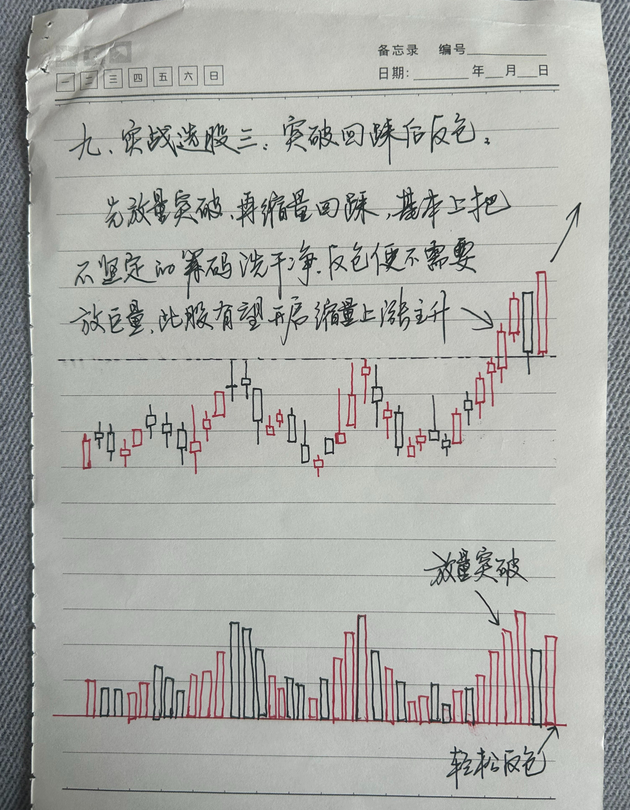 备忘录 编号
一 二 三 四 五 六 日
日期: 年 月 日
九、实战选股三:突破回踩后反包。
先放量突破,再缩量回踩,基本上把
不坚定的筹码洗干净.反包便不需要
放巨量,此股有望开启缩量上涨主升
放量突破
轻松反包